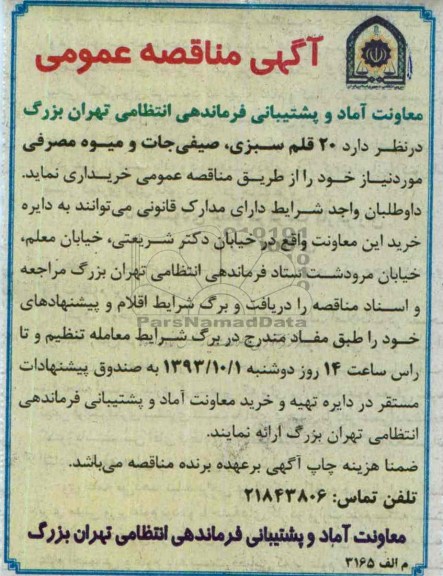 آگهی مناقصه عمومی
معاونت آماد و پشتیبانی فرماندهی انتظامی تهران بزرگ
درنظر دارد ۲۰ قلم سبزی، صیفی‌جات و میوه مصرفی
موردنیاز خود را از طریق مناقصه عمومی خریداری نماید.
داوطلبان واجد شرایط دارای مدارک قانونی می‌توانند به دایره
خرید این معاونت واقع در خیابان دکتر شریعتی، خیابان معلم،
خیابان مرودشت ستاد فرماندهی انتظامی تهران بزرگ مراجعه
و اسناد مناقصه را دریافت و برگ شرایط اقلام و پیشنهادهای
ParsNamadData
خود را طبق مفاد مندرج در برگ شرایط معامله تنظیم و تا
راس ساعت ۱۴ روز دوشنبه ۱۳۹۳/۱۰/۱ به صندوق پیشنهادات
مستقر در دایره تهیه و خرید معاونت آماد و پشتیبانی فرماندهی
انتظامی تهران بزرگ ارائه نمایند.
ضمنا هزینه چاپ آگهی برعهده برنده مناقصه می‌باشد.
تلفن تماس: ۲۱۸۴۳۸۰۶
معاونت آماد و پشتیبانی فرماندهی انتظامی تهران بزرگ
م الف ۳۱۶۵